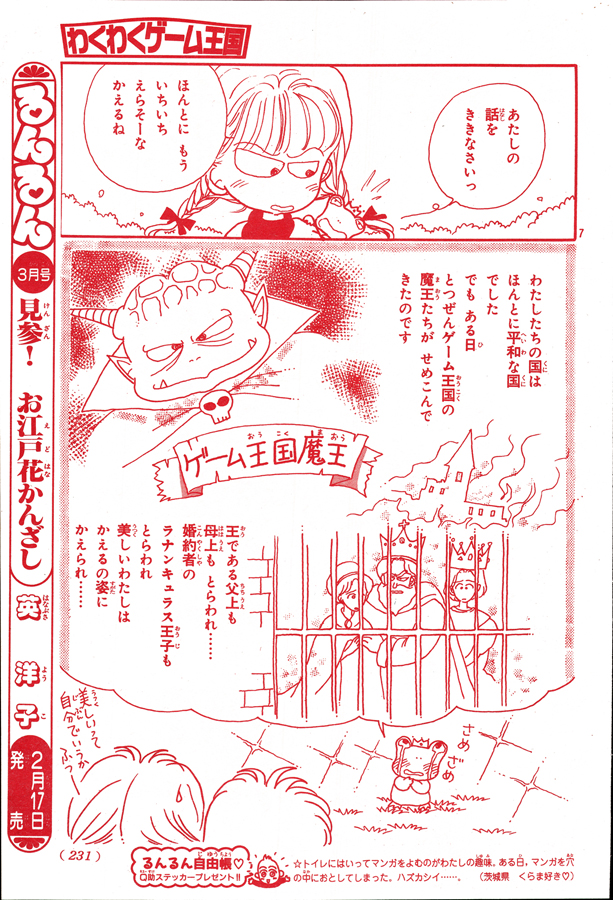 わくわくゲーム王国
あたしの
話を
ききなさいっ
ほんとに もう
いちいち
えらそーな
かえるね
7
わたしたちの国は
ほんとに平和な国
でした
でも ある日
とつぜんゲーム王国の
魔王たちが せめこんで
きたのです
ゲーム王国魔王
王である父上も
母上も とらわれ……
婚約者の
ラナンキュラス王子も
とらわれ
美しいわたしは
かえるの姿に
かえられ……
さめ
ざめ
美しいって
自分でいうか
ふつー
るんるん
3月号
見参! お江戸花かんざし
英 洋子
2月17日
発売
(231)
るんるん自由帳♡
Q助ステッカープレゼント!!
☆トイレにはいってマンガをよむのがわたしの趣味。ある日、マンガを穴
の中におとしてしまった。ハズカシイ……。 (茨城県 くらま好き♡)